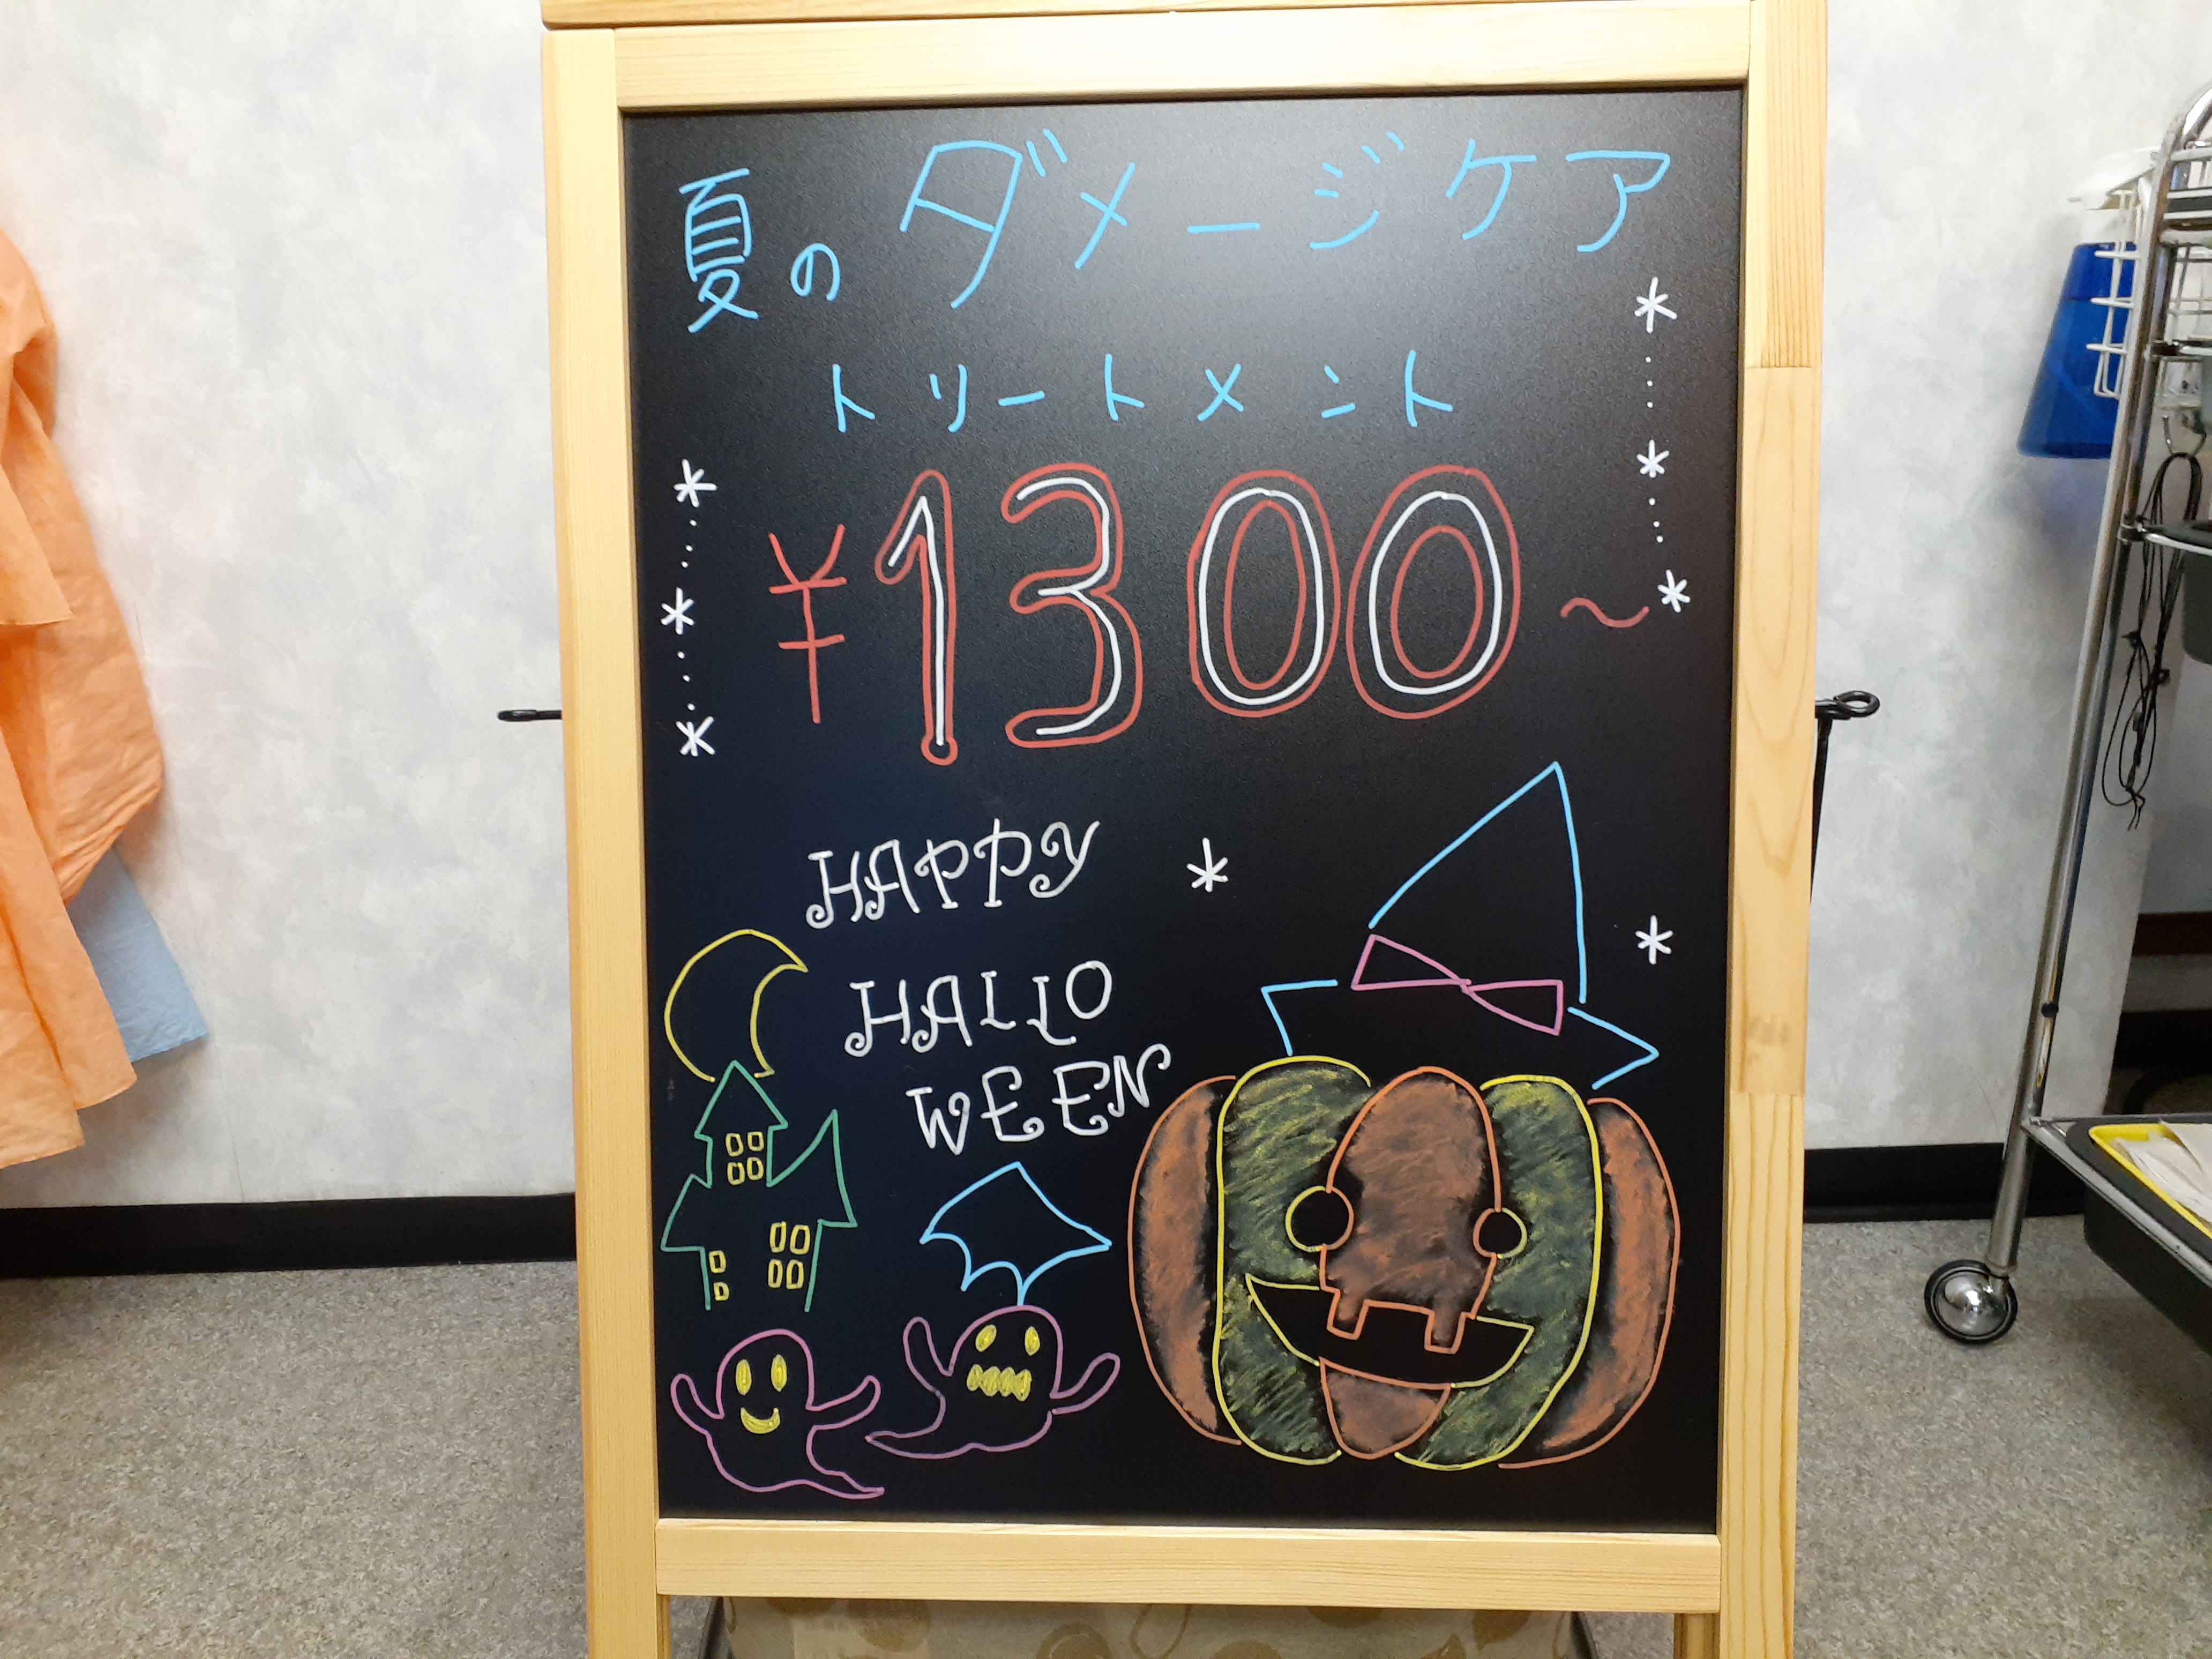 夏のダメージケア
トリートメント
¥1300〜
HAPPY
HALLO
WEEN